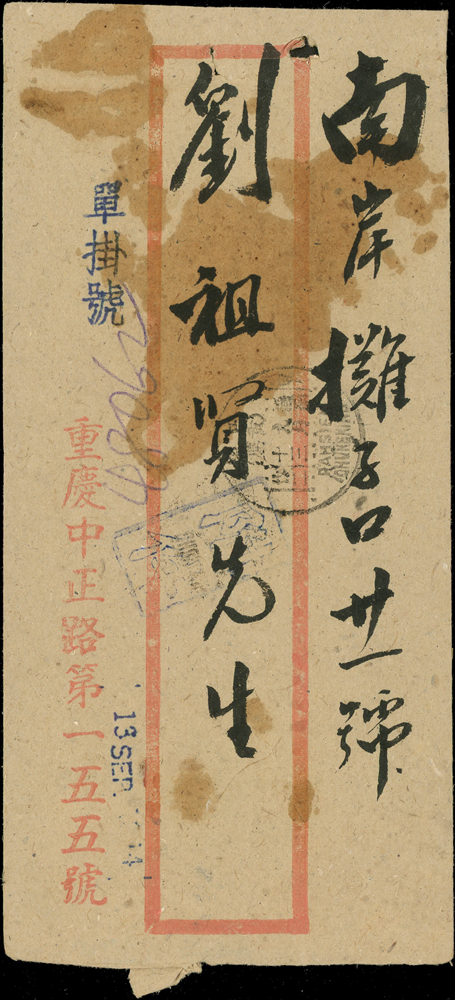 南岸攤子口廿一號
劉祖賢先生
單掛號
重慶中正路第一五五號
13 SEP.